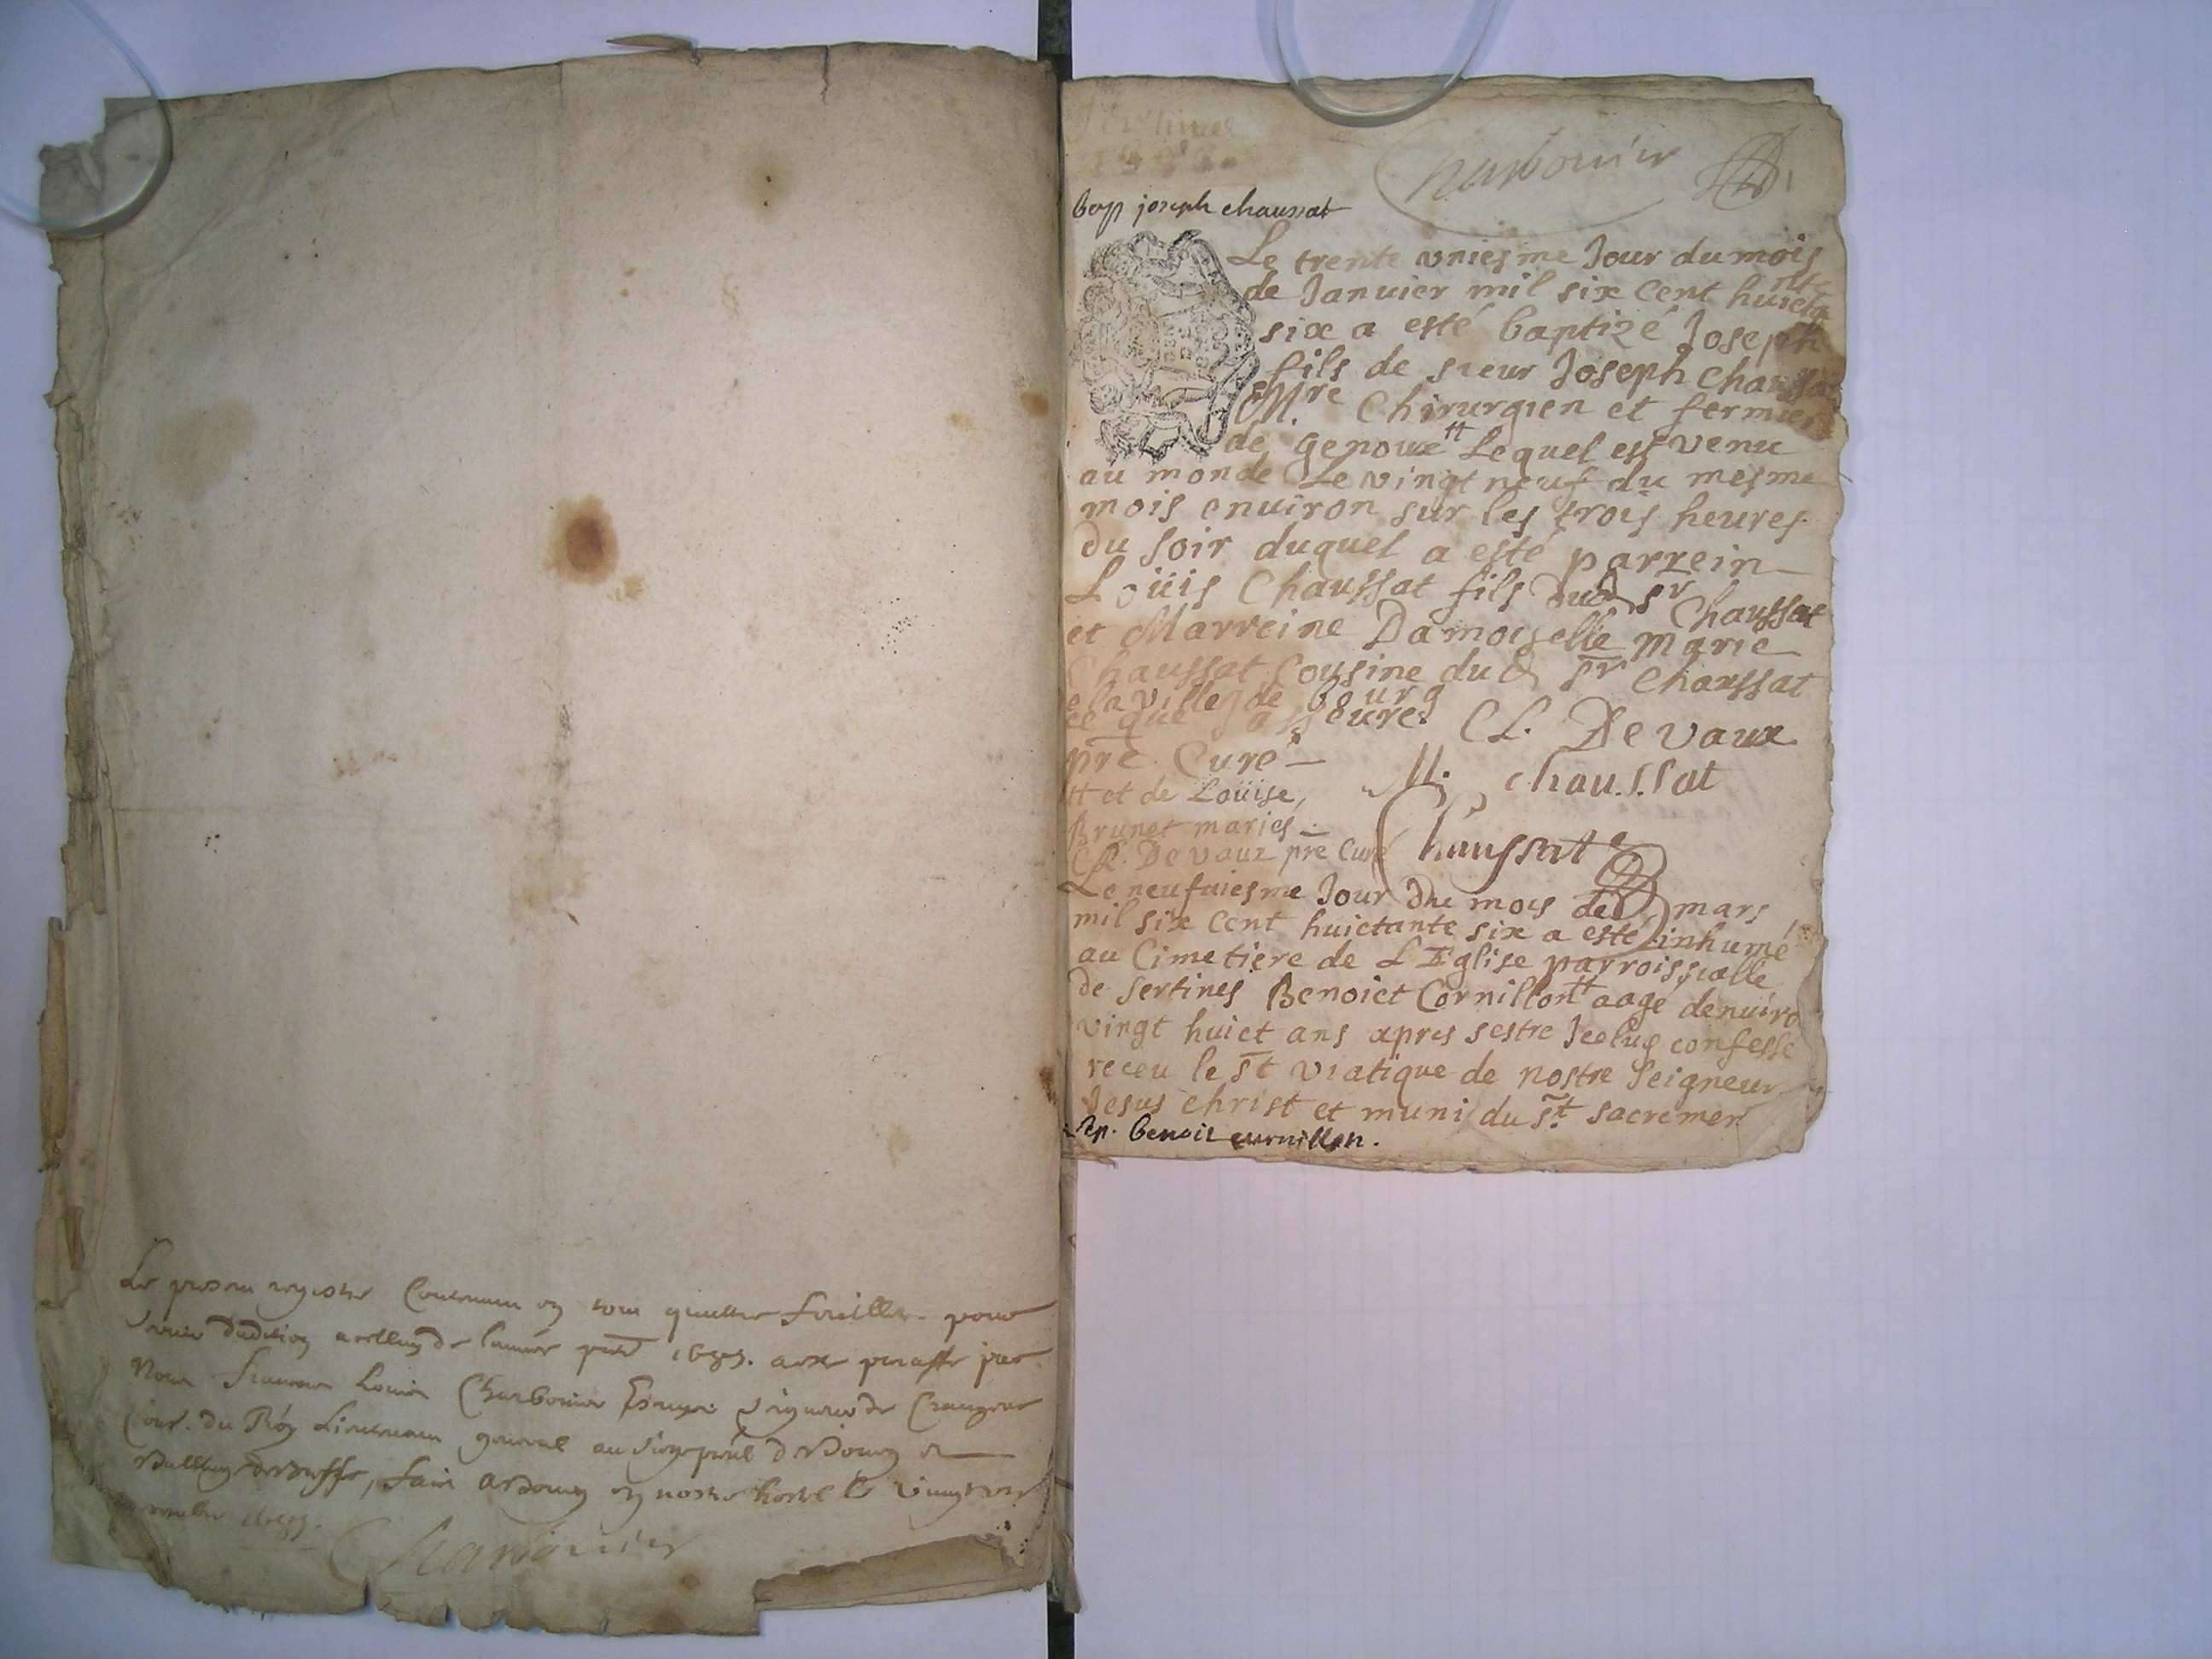 Le present registre Contenant en tout quattre feuillets pour
servir d'adition a celluy de l'année 1685. a este paraffé par
Nous François Louis Charbonier Escuyer Seigneur de Crangeac
Cons.r du Roy Lieutenant general au Siege de Bourg et
fait a Bourg en nostre hostel le vingt
1685.
Charbonier
Charbonier
bap joseph chaussat
Le trente vniesme Jour du mois
de Janvier mil six Cent huictante
six a esté baptizé Joseph
fils de sieur Joseph Chaussat
Mre Chirurgien et fermier
de genoux # Lequel est venu
au monde Le vingt neuf du mesme
mois enuiron sur les trois heures
du soir duquel a esté parrein
Loüis Chaussat fils dud sr Chaussat
et Marreine Damoiselle Marie
Chaussat Cousine dud sr Chaussat
de la ville de bourg
ce que asseure. CL. De vaux
pre Curé
M. chaussat
# et de Loüise
Brunet mariés
CL. De vaux pre Curé
Chaussat
Le neufuiesme Jour du mois de mars
mil six cent huictante six a esté inhumé
au Cimetiere de L'Eglise parroissialle
de Sertines Benoict Cornillon # aagé denuiro
vingt huict ans apres sestre confessé
receu le st viatique de nostre Seigneur
Jesus christ et muni du st. sacremen
Sep. benoit curnillon.